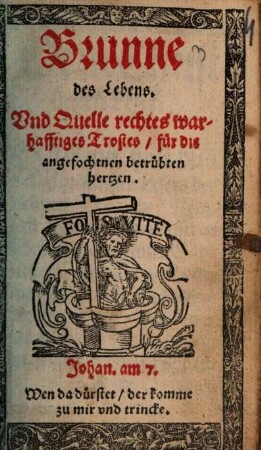 Brunne
des Lebens.
Vnd Quelle rechtes war-
hafftiges Trostes / für die
angefochtnen betrübten
hertzen.
FONS VITE
Johan. am 7.
Wen da dürstet / der komme
zu mir vnd trincke.